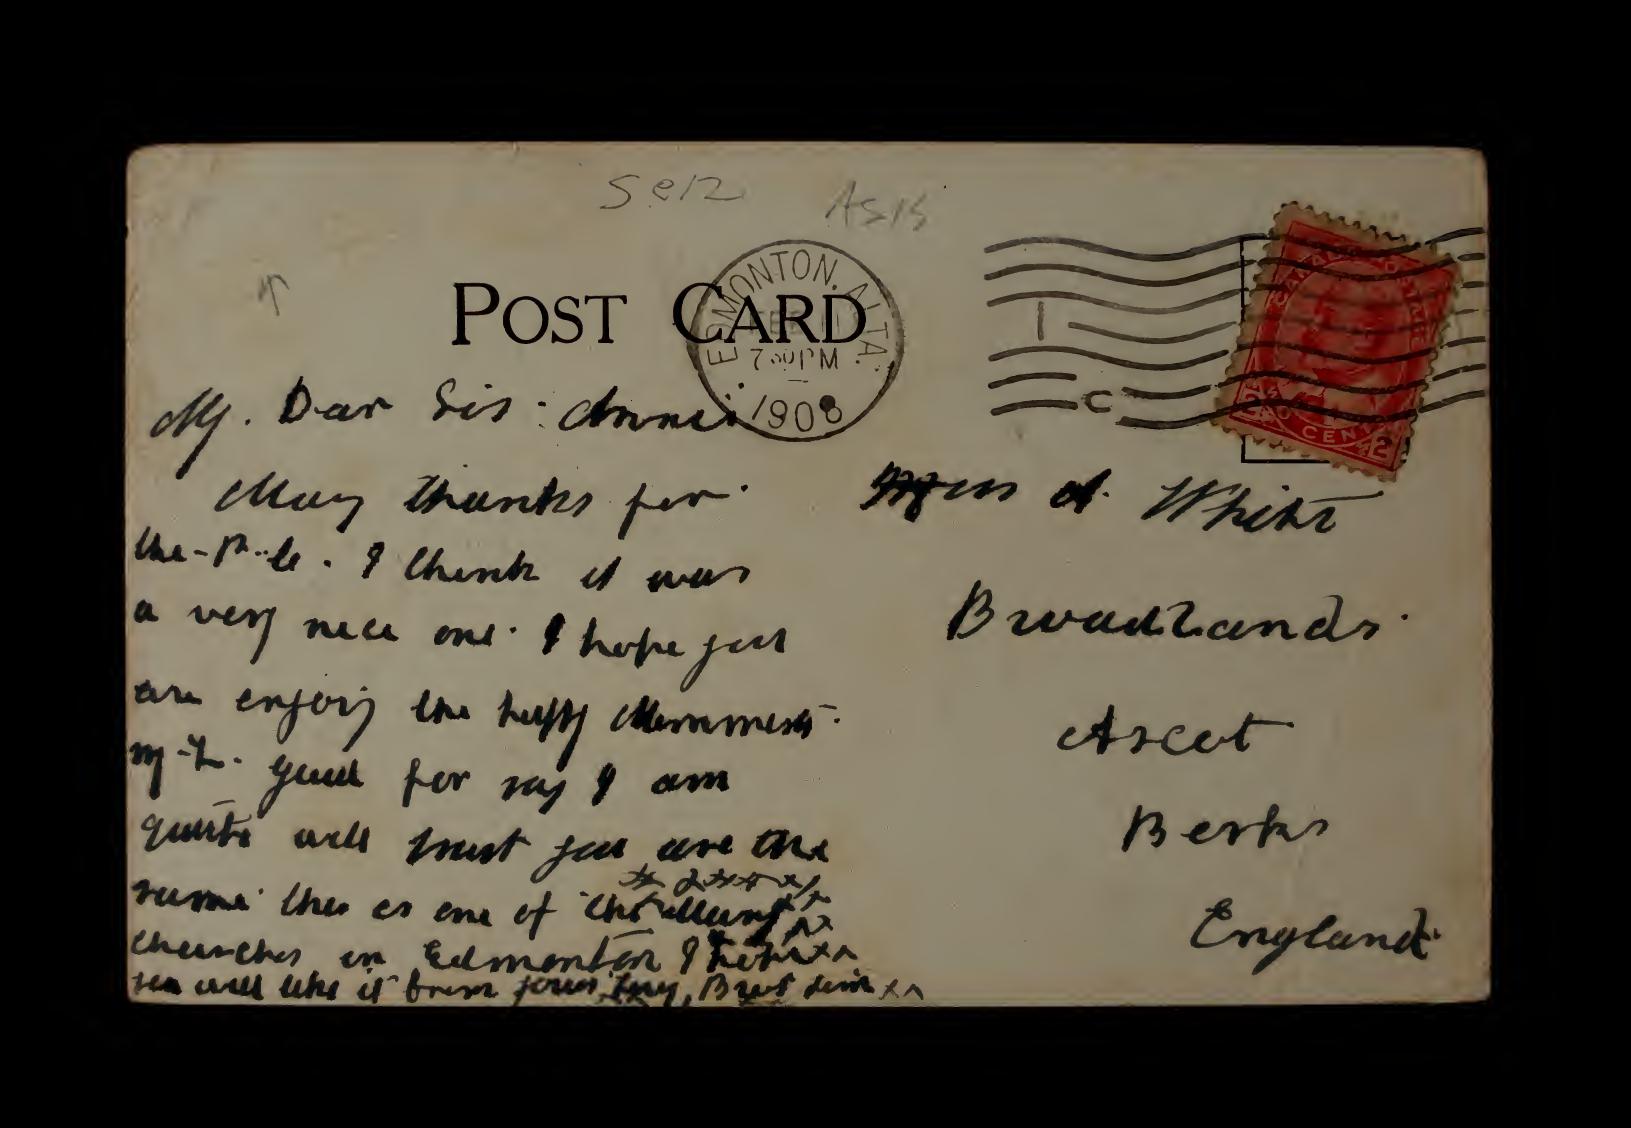 Se12 AS15
POST CARD
EDMONTON, ALTA.
7 30 PM
1908
1
C
CANADA POSTAGE
2 CENTS 2
My. Dear Sis: Annie
Many thanks for
the P.c. I think it was
a very nice one. I hope you
are enjoy the happy
good for say I am
quite well trust you are the
same this is one of the
churches in Edmonton I hope
you will like it from Bro
A. White
Broadlands.
Ascot
Berks
England